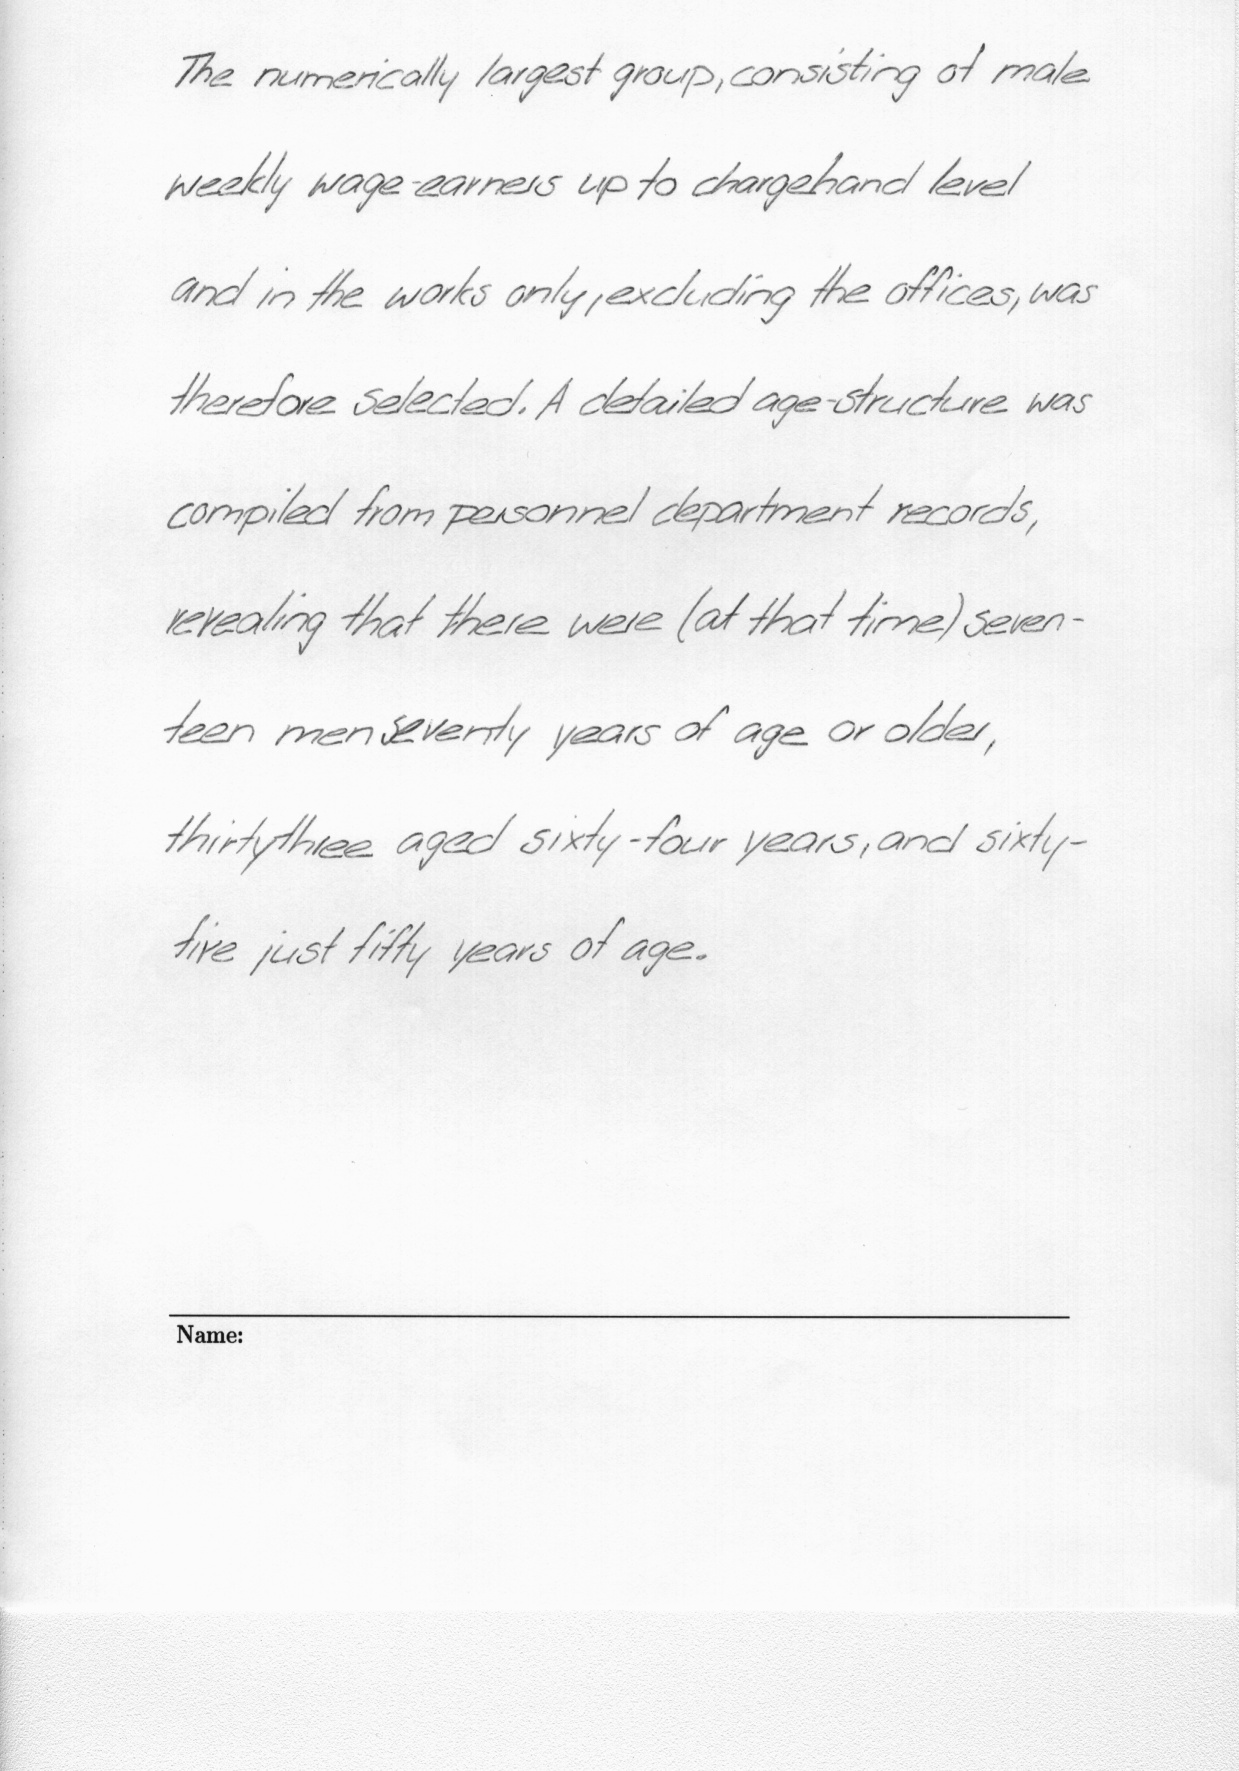 The numerically largest group, consisting of male
weekly wage-earners up to chargehand level
and in the works only, excluding the offices, was
therefore selected. A detailed age-structure was
compiled from personnel department records,
revealing that there were (at that time) seven-
teen men seventy years of age or older,
thirtythree aged sixty-four years, and sixty-
five just fifty years of age.
Name: